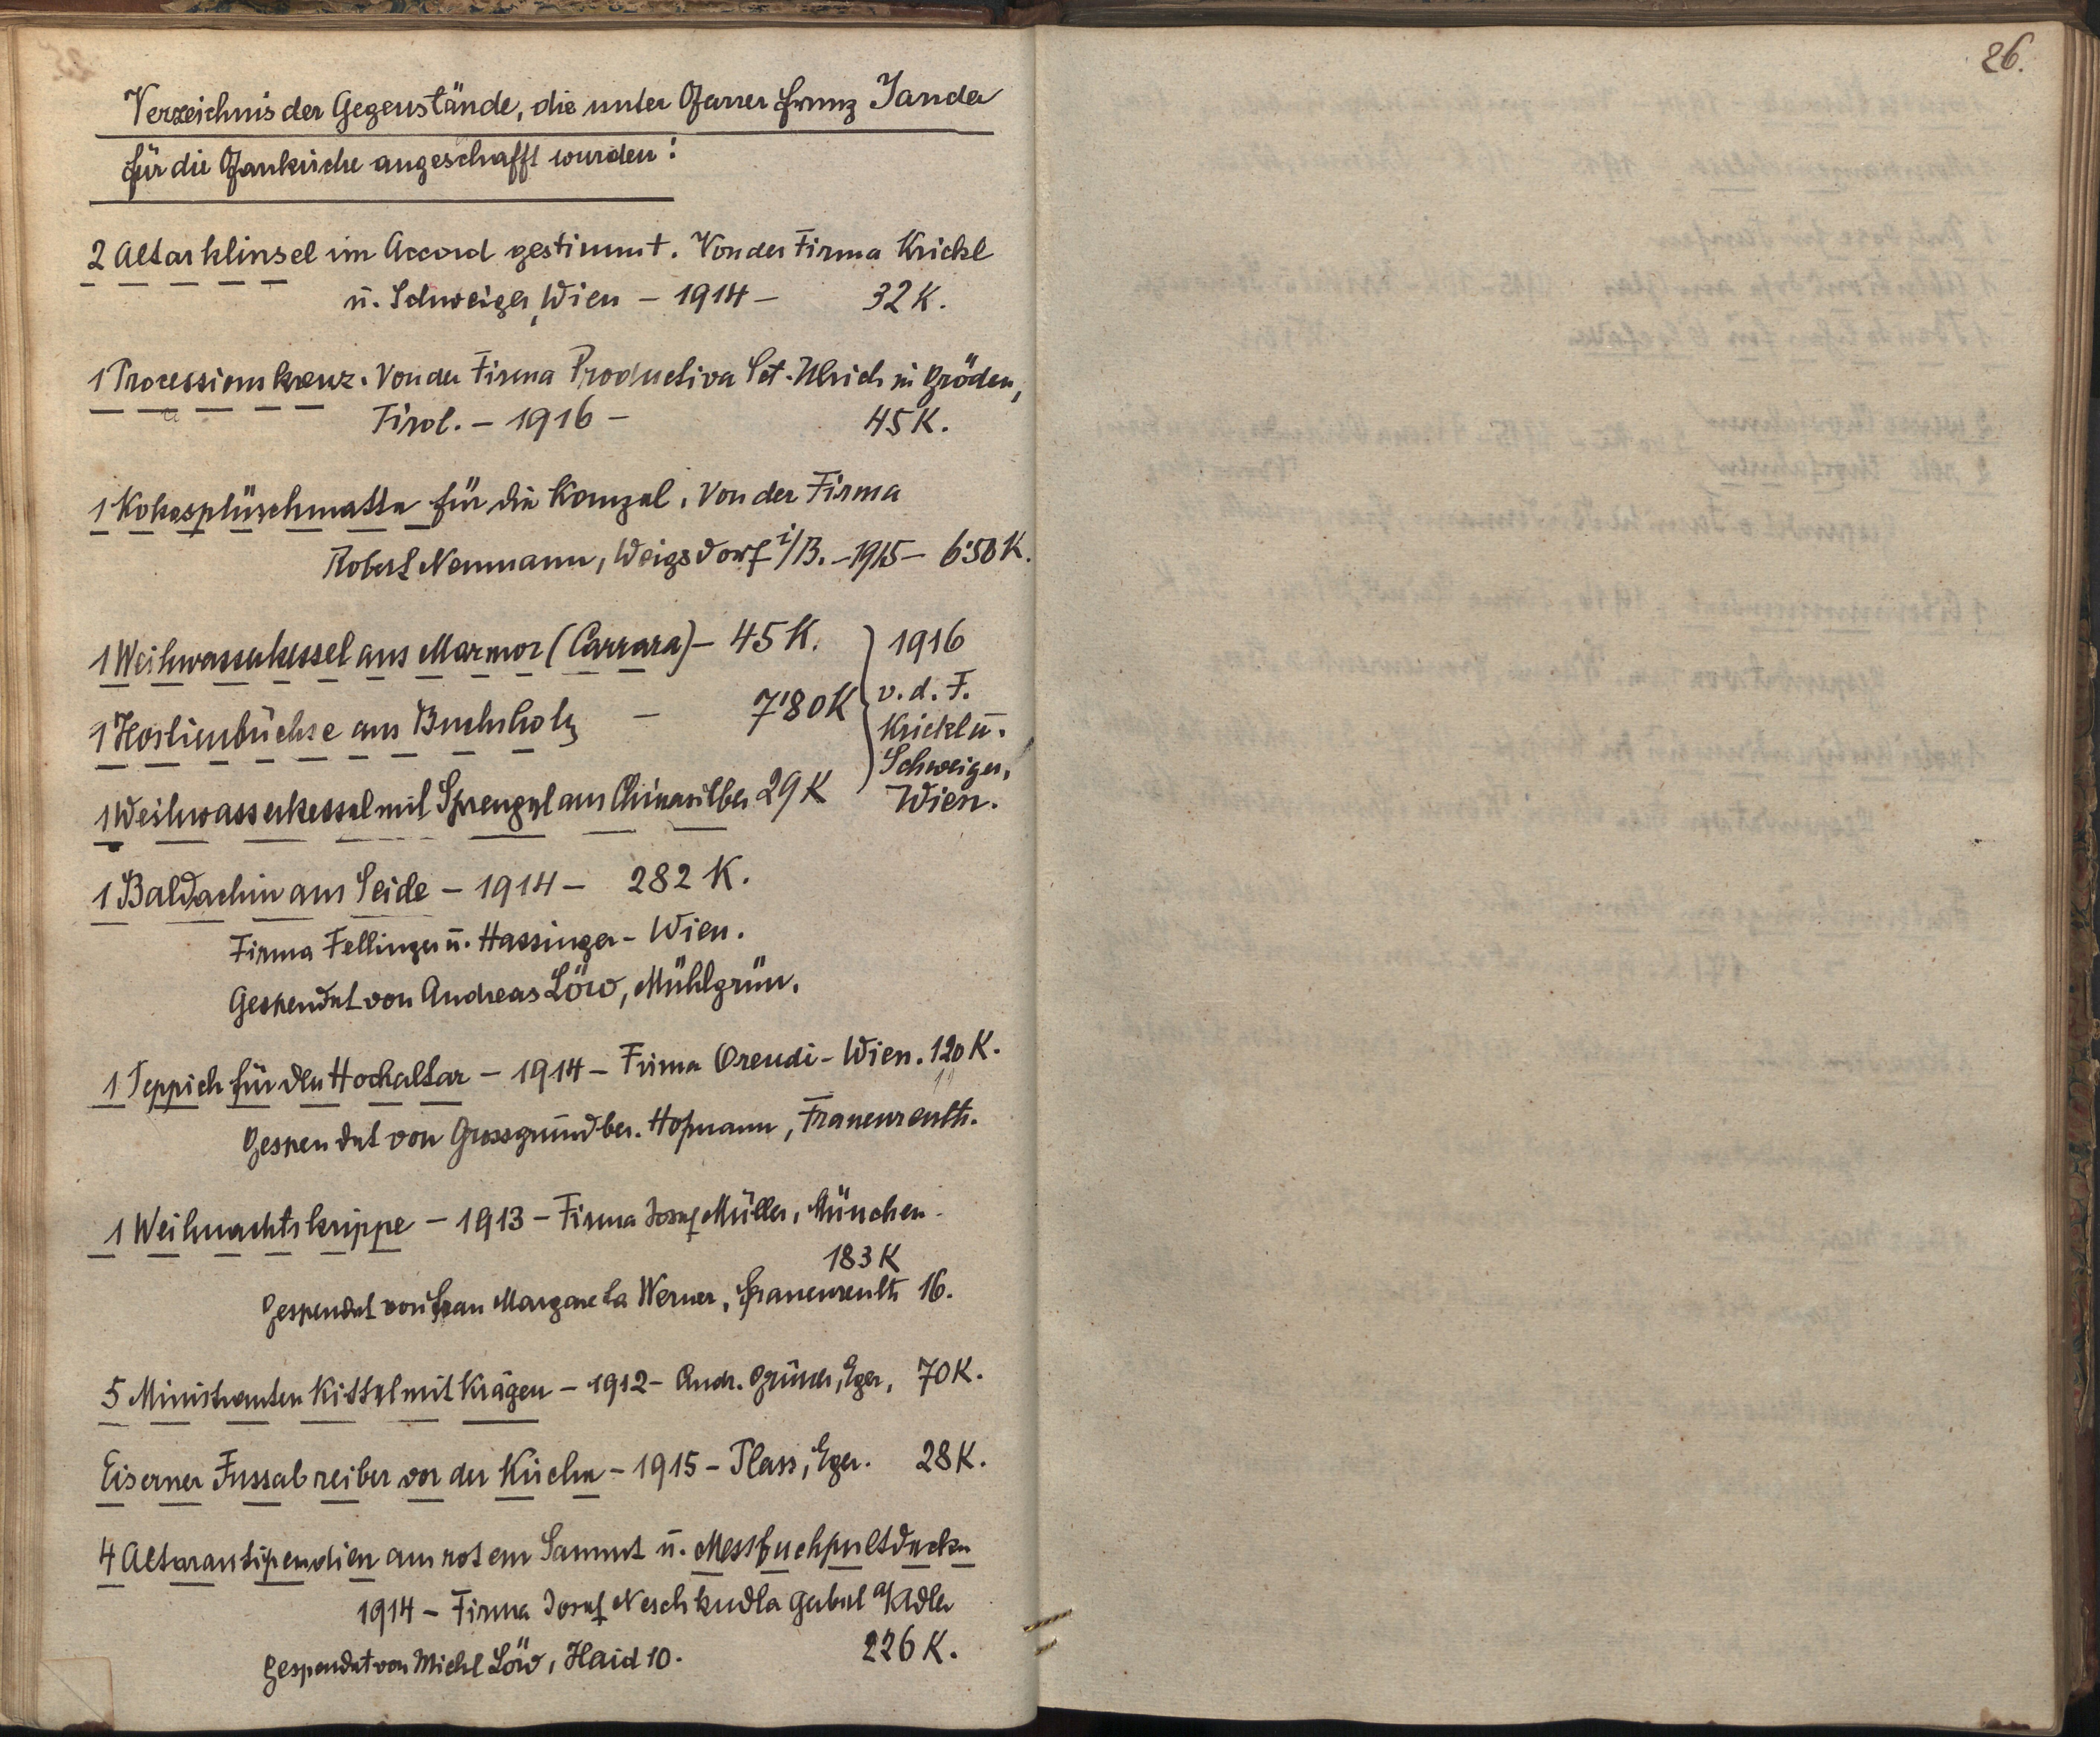 Verzeichnis der Gegenstände, die unter Pfarrer Franz Janda
für die Pfarrkirche angeschafft wurden:
2 Altarklinsel im Accord gestimmt. Von der Firma Krickl
u. Schweiger, Wien - 1914 - 32 K.
1 Processionskreuz. Von der Firma Productiva Sct. Ulrich in Gröden,
Tirol. - 1916 - 45 K.
1 Kokosplüschmatte für die Kanzel. Von der Firma
Robert Neumann, Weigsdorf i/B. - 1915 - 6'50 K.
1 Weihwasserkessel aus Marmor (Carrara) - 45 K.
1 Hostienbüchse aus Buchsholz - 7'80 K
1 Weihwasserkessel mit Sprengel aus Chinasilber 29 K
1916
v. d. F.
Krickl u.
Schweiger,
Wien.
1 Baldachin aus Seide - 1914 - 282 K.
Firma Fellinger u. Hassinger - Wien.
Gespendet von Andreas Löw, Mühlgrün.
1 Teppich für den Hochaltar - 1914 - Firma Orendi - Wien. 120 K.
Gespendet von Grossgrundbes. Hofmann, Frauenreuth.
1 Weihnachtskrippe - 1913 - Firma Josef Müller, München -
183 K
Gespendet von Frau Margareta Werner, Frauenreuth 16.
5 Ministranten Kittel mit Krägen - 1912 - Andr. Grüner, Eger, 70 K.
Eiserner Fussabreiber vor der Kirche - 1915 - Plass, Eger. 28 K.
4 Altarantipendien aus rotem Sammt u. Messbuchpultdecke
1914 - Firma Josef Neschkudla Gabel a/Adler
226 K.
Gespendet von Michl Löw, Haid 10.
26.